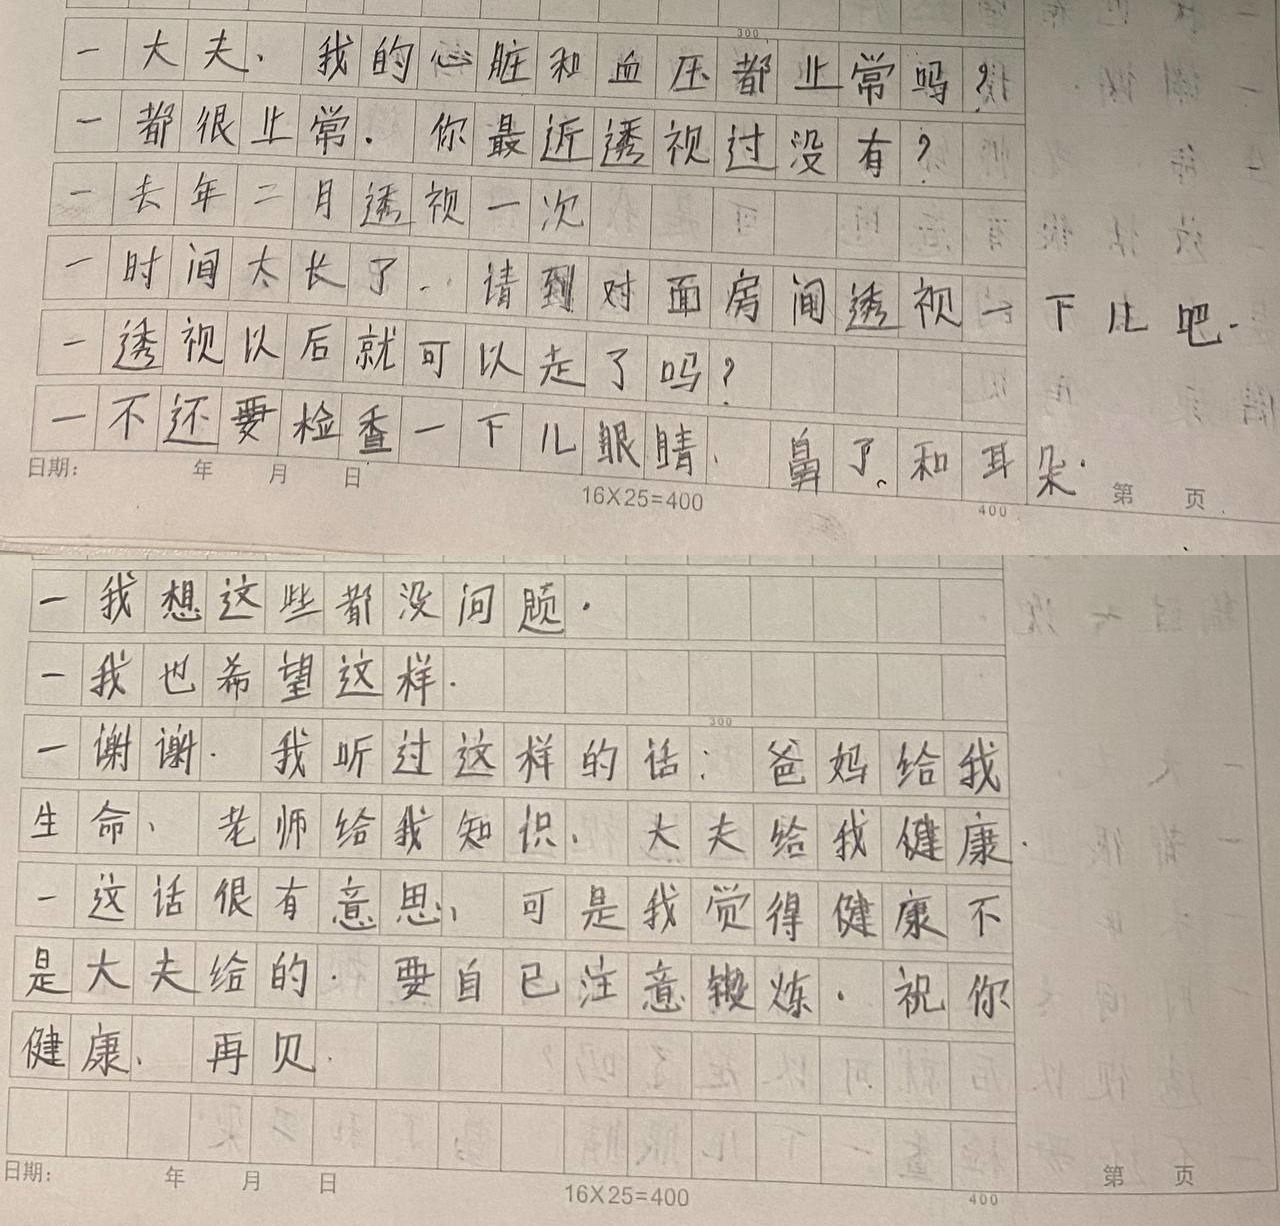 300
一大夫、我的心脏和血压都正常吗?
一都很正常. 你最近透视过没有?
一去年二月透视一次
一时间太长了. 请到对面房间透视一下儿吧.
一透视以后就可以走了吗?
一不还要检查一下儿眼睛、鼻子、和耳朵.
日期: 年 月 日 16X25=400 400 第 页
一我想这些都没问题.
一我也希望这样.
300
一谢谢. 我听过这样的话: 爸妈给我
生命、老师给我知识、大夫给我健康.
一这话很有意思, 可是我觉得健康不
是大夫给的. 要自己注意锻炼. 祝你
健康、再见.
日期: 年 月 日 16X25=400 400 第 页